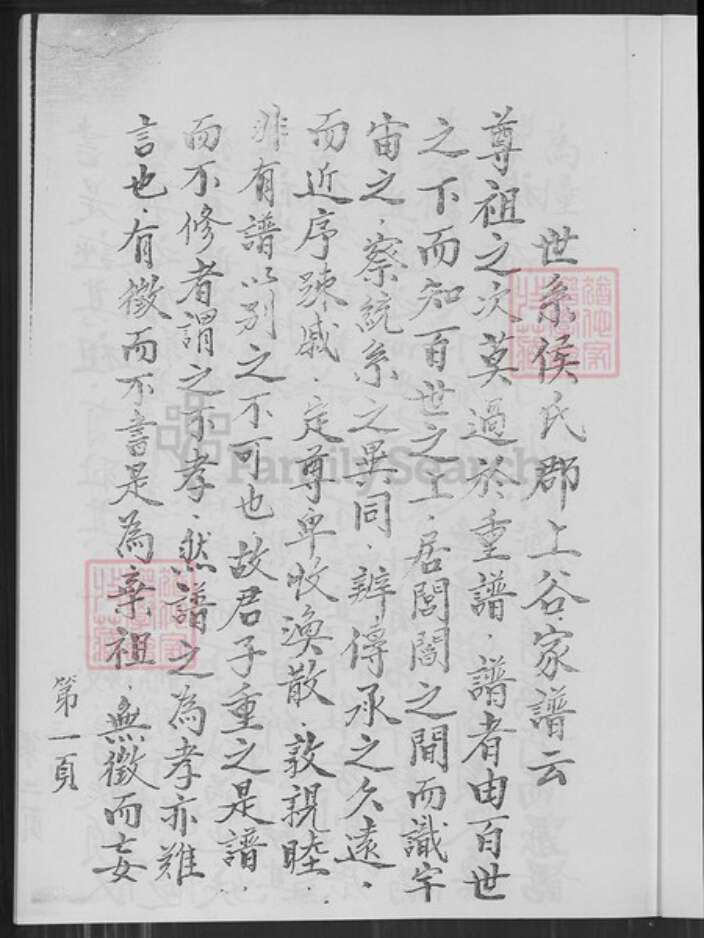 世系侯氏郡上谷.家譜云
尊祖之次莫過於重譜.譜者由百世
之下而知百世之上.居閭閻之間而識宇
宙之.察統系之異同.辨傳承之久遠.
而近序踈戚.定尊卑收渙散.敦親睦.
非有譜以別之不可也.故君子重之是譜
而不修者謂之不孝.然譜之為孝亦難
言也.有徵而不書是為棄祖.無徵而妄
第一頁
FamilySearch